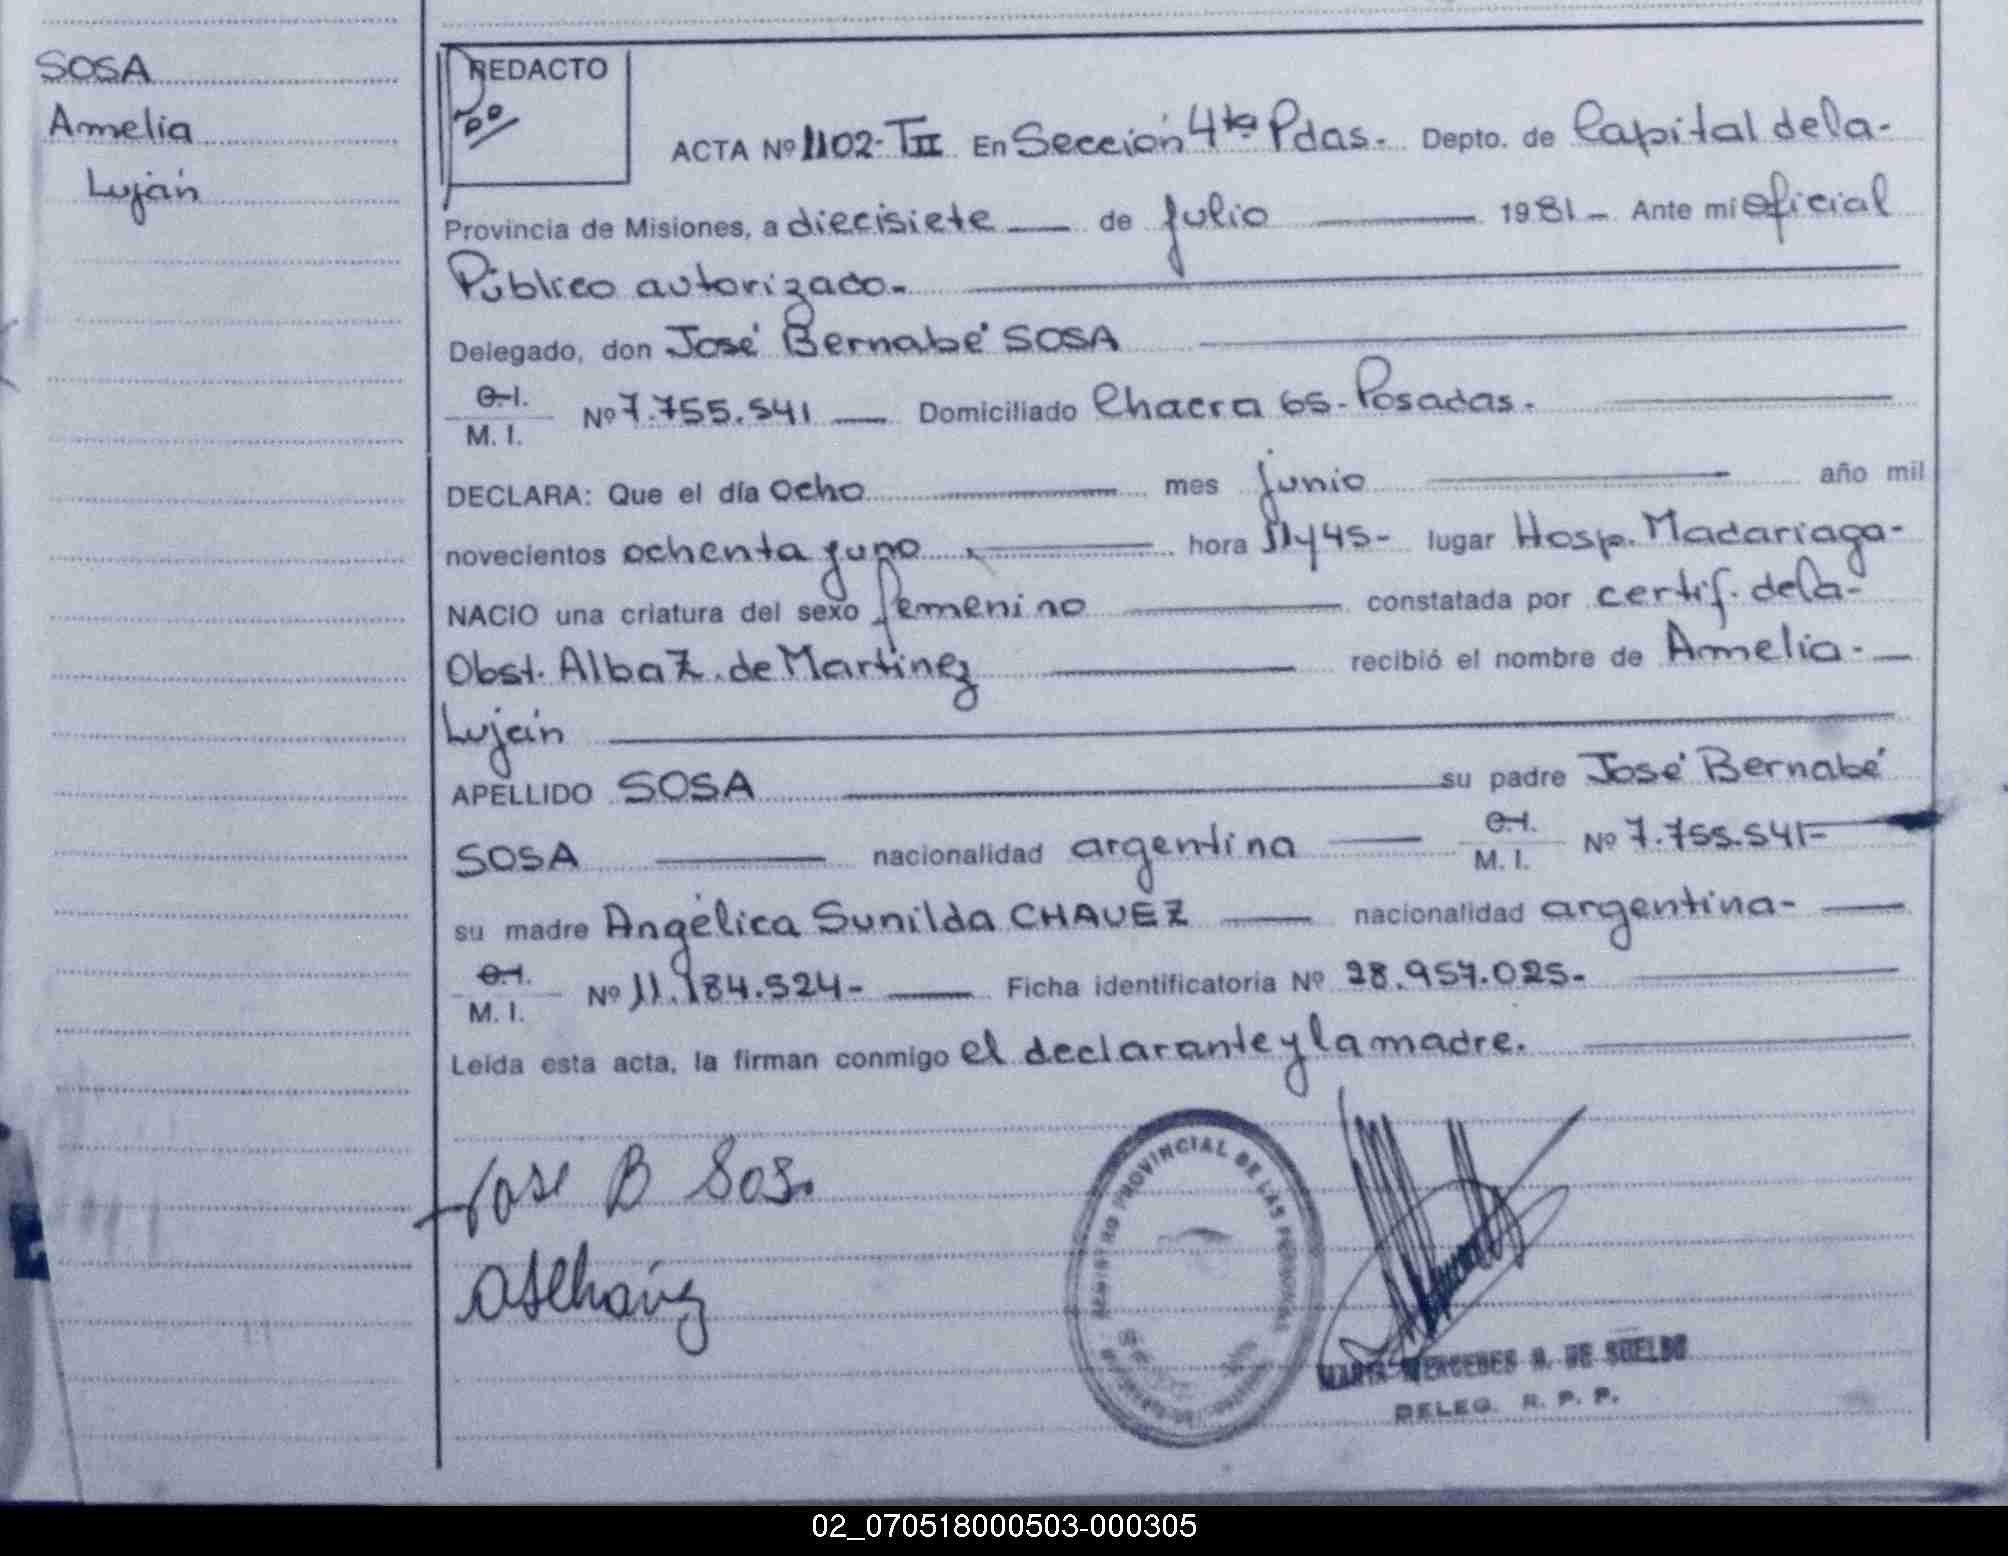 SOSA
Amelia
Luján
REDACTO
ACTA Nº 1102-TII En Sección 4ta Pdas. Depto. de Capital de la-
Provincia de Misiones, a diecisiete de julio 1981 Ante mi oficial
Público autorizado.
Delegado, don José Bernabé SOSA
C.I.
M. I. Nº 7.755.541 Domiciliado Chacra 65-Posadas.
DECLARA: Que el día ocho mes junio año mil
novecientos ochenta y uno hora 11y45- lugar Hosp. Madariaga-
NACIO una criatura del sexo femenino constatada por certif. de la-
Obst. Alba Z. de Martínez recibió el nombre de Amelia-
Luján
APELLIDO SOSA su padre José Bernabé
SOSA nacionalidad argentina C.I. M. I. Nº 7.755.541-
su madre Angélica Sunilda CHAVEZ nacionalidad argentina-
C.I.
M. I. Nº 11.184.524- Ficha identificatoria Nº 28.957.025-
Leída esta acta, la firman conmigo el declarante y la madre.
Jose B Sosa
AS Chávez
REGISTRO PROVINCIAL DE LAS PERSONAS
MARIA MERCEDES A. DE SUELDO
DELEG. R. P. P.
02_070518000503-000305